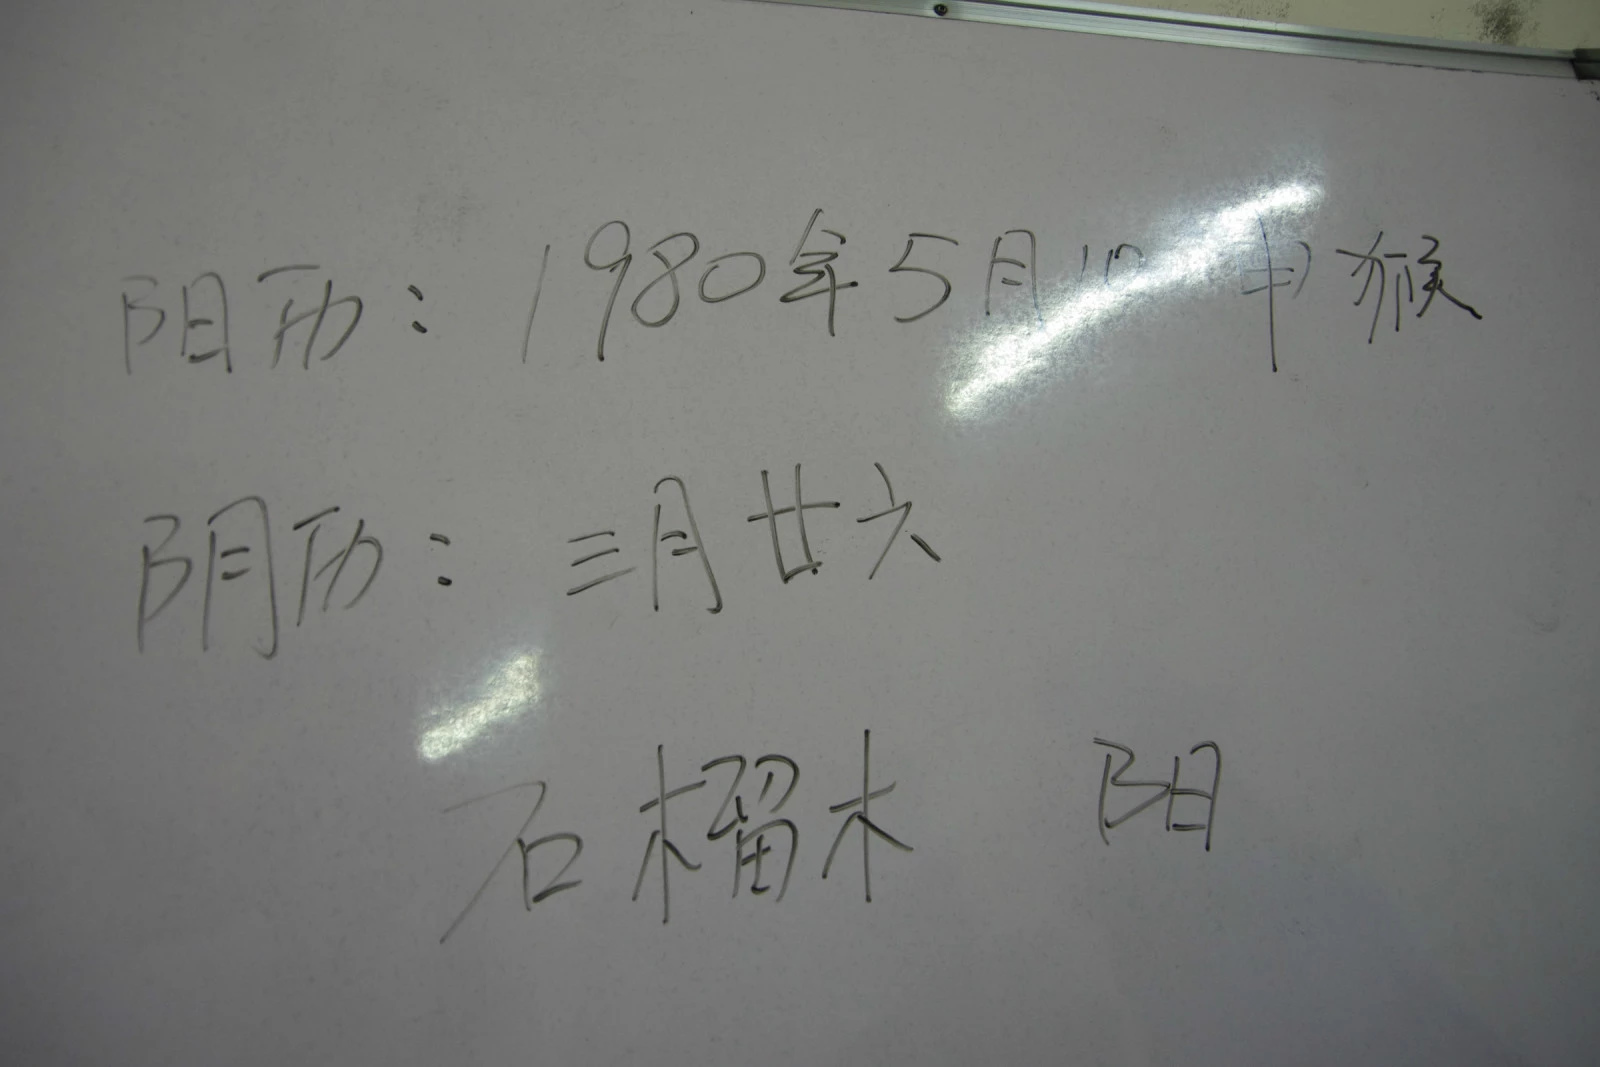 阳历：1980年5月10 申猴
阴历：三月廿六
石榴木 阳